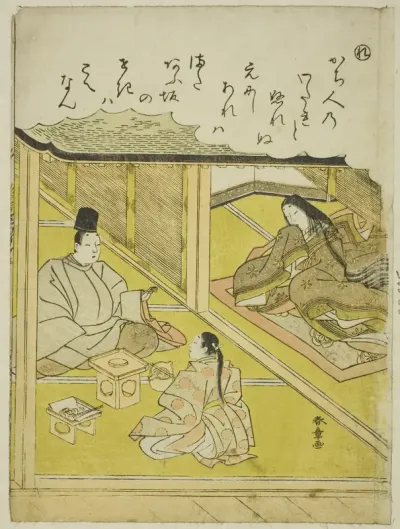 れ
かち人乃
わたれと
ぬれぬ
えにし
あれハ
また
あふ坂
の
せきハ
こえ
なん
春章画